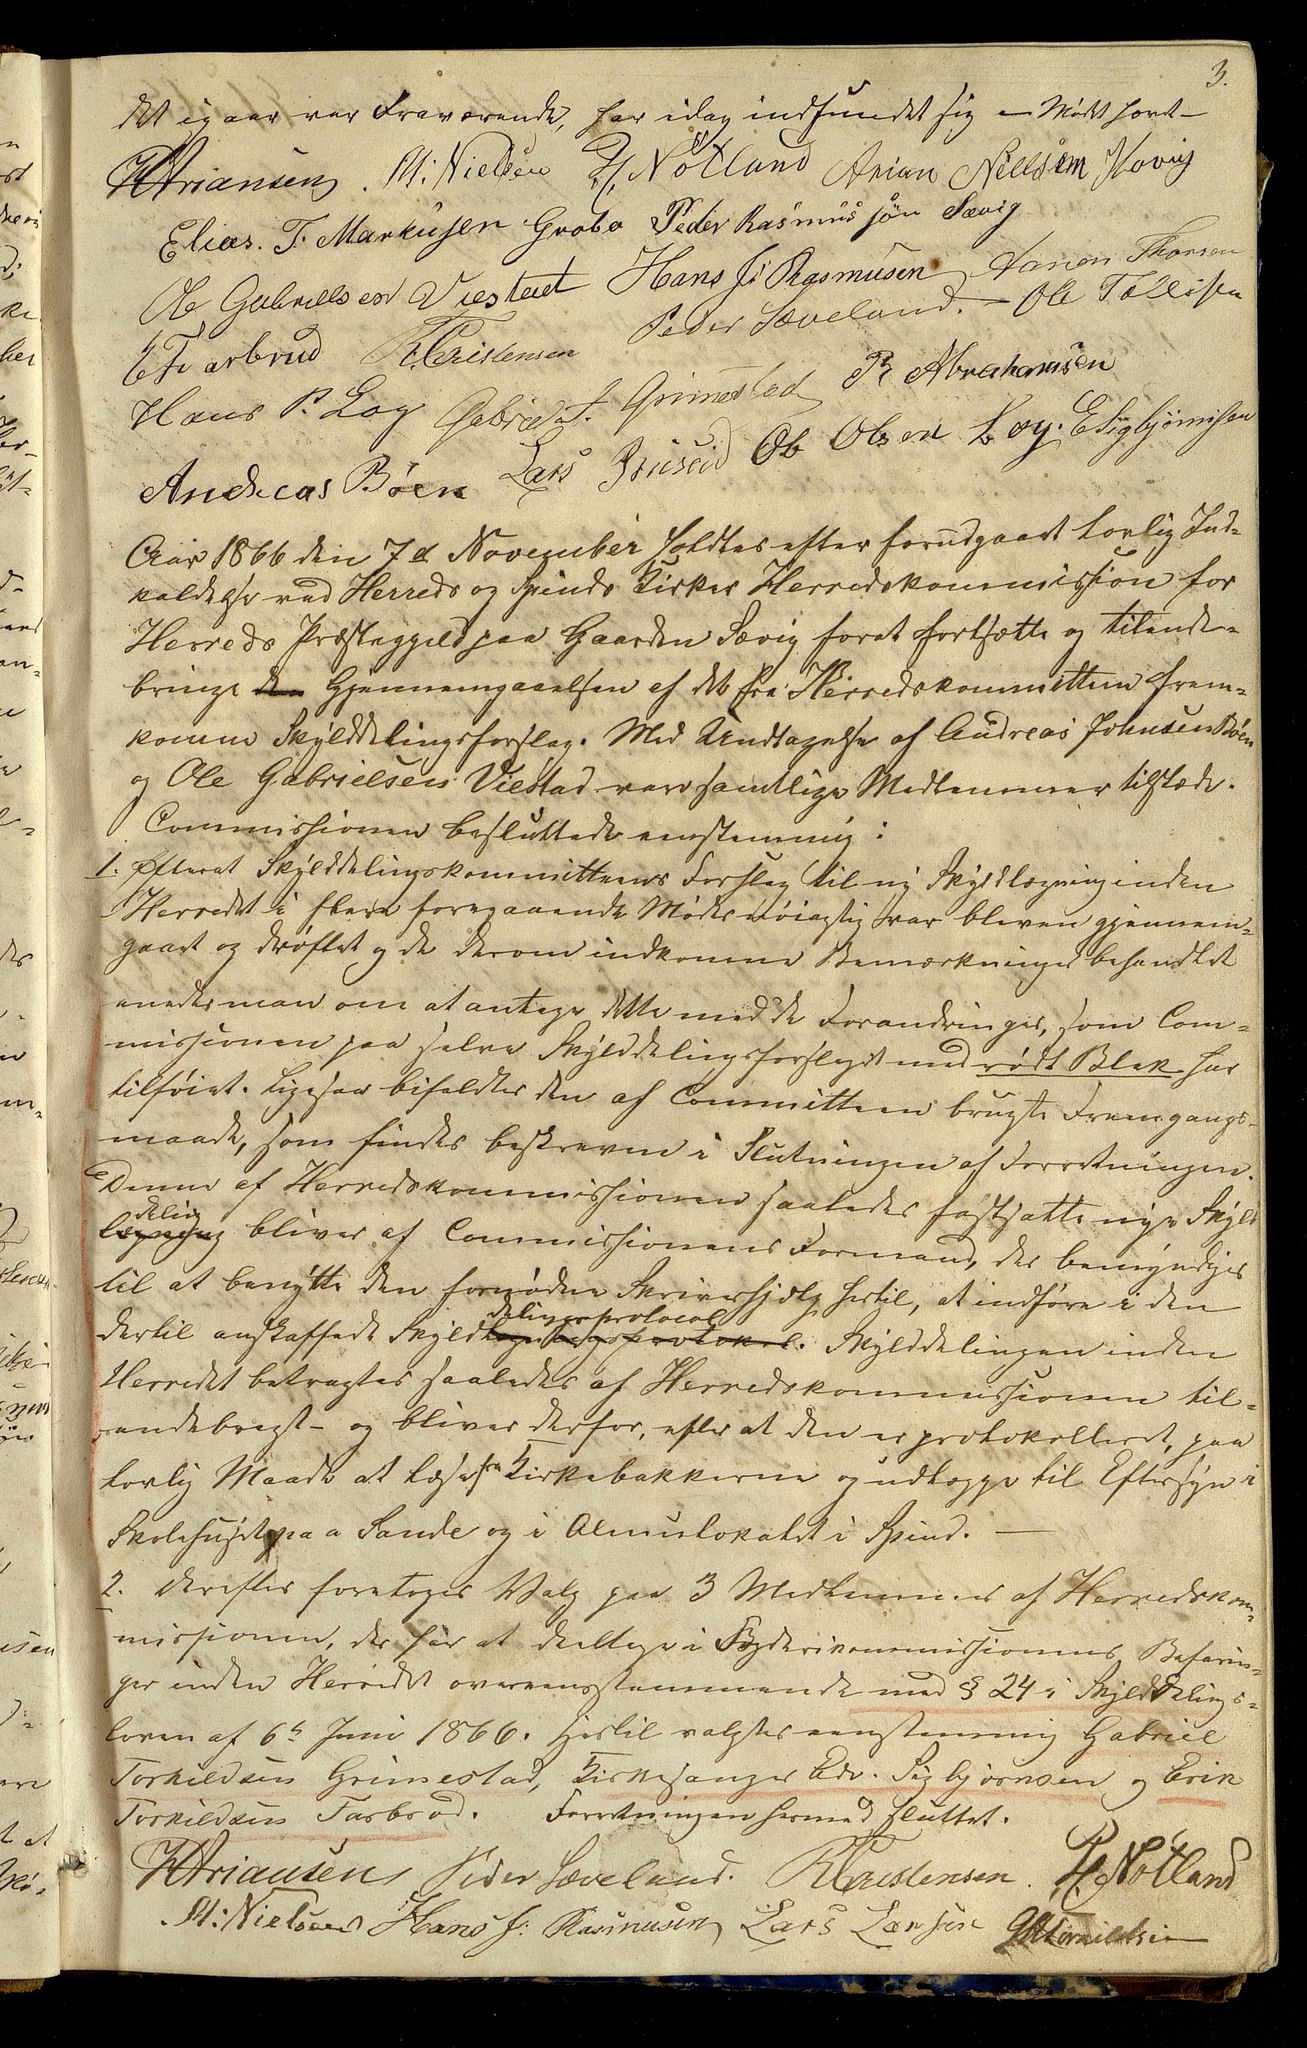 3.
det igaar var Fraværende, har idag indfundet sig – Mødt hævet –
H Ariansen. M: Nielsen P. H. Nøtland Arian Nielsen Hovig
Elias. T. Markusen Grobø Peder Rasmussøn Sævig
Ole Gabrielsen Viestad Hans J: Rasmusen Aanen Thorsen
E T: arbrud R. Cristensen Peder Sæveland. – Ole Tollisen
Hans P. Log Gabriel T. Grimestad R Abrahamsen
Andreas Bøen Lars Briseid Ole Olsen Log. E Sigbjørnsen
Aar 1866 den 7d November holdtes efter forudgaaet lovlig Ind-
kaldelse ved Herreds og Spinds Kirker Herredskommission for
Herreds Præstegjeld paa Gaarden Sævig forat fortsætte og tilende-
bringe den Gjennemgaaelsen af det fra Herredskommitteen frem-
komne Skylddelingsforslag. Med Undtagelse af Andreas Johnsen Bøen
og Ole Gabrielsen Viestad vare samtlige Medlemmer tilstæde.
Commissionen besluttede eenstemmig:
1. Efterat Skylddelingskommitteens Forslag til ny Skyldlægning inden
Herredet i flere foregaaende Møder nøiagtig var bleven gjennem-
gaaet og drøftet og de derom indkomne Bemærkninger behandlet
enedes man om at antage dette med de Forandringer, som Com-
missionen paa selve Skylddelingsforslaget med rødt Blæk har
tilføiet. Ligesaa bifaldtes den af Committeen brugte Fremgangs-
maade, som findes beskreven i Slutningen af Forretningen.
Denne af Herredskommissionen saaledes fastsatte nye Skyld
deling
lægning bliver af Commissionens Formand, der bemyndiges
til at benytte den fornødne Skriverhjælp hertil, at indføre i den
delingsprotocol
dertil anskaffede Skyldlægningsprotokol. Skylddelingen inden
Herredet betragtes saaledes af Herredskommissionen til-
endebragt – og bliver derfor, efter at den er protokolleret, paa
lovlig Maade at læse fra Kirkebakkerne og udlægge til Eftersyn i
Skolehuset paa Sande og i Almulokalet i Spind. —
2. Derefter foretoges Valg paa 3 Medlemmer af Herredskom-
missionen, der har at deeltage i Fogderikommissionens Befarin-
ger inden Herredet overeensstemmende med § 24 i Skylddelings-
loven af 6te Juni 1866. Hertil valgtes eenstemmig Gabriel
Torkildsen Grimestad, Kirkesanger Edv. Sigbjørnsen og Erik
Torkildsen Tarbrød. Forretningen hermed sluttet.
H Ariansen Peder Sæveland. R Cristensen. P. H. Nøtland
M: Nielsen Hans J: Rasmusen Lars Larsen